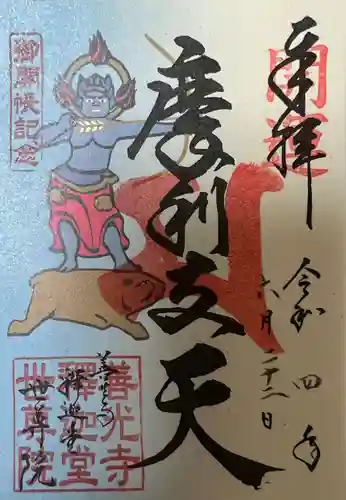 開運
奉拝
令和四年
六月二十二日
摩利支天
御開帳記念
善光寺
釋迦堂
世尊院
善光寺
釋迦堂
世尊院